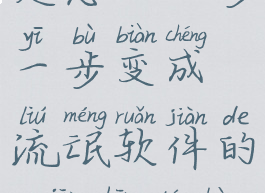 yī bù biàn chéng
一步变成
liú méng ruǎn jiàn de
流氓软件的